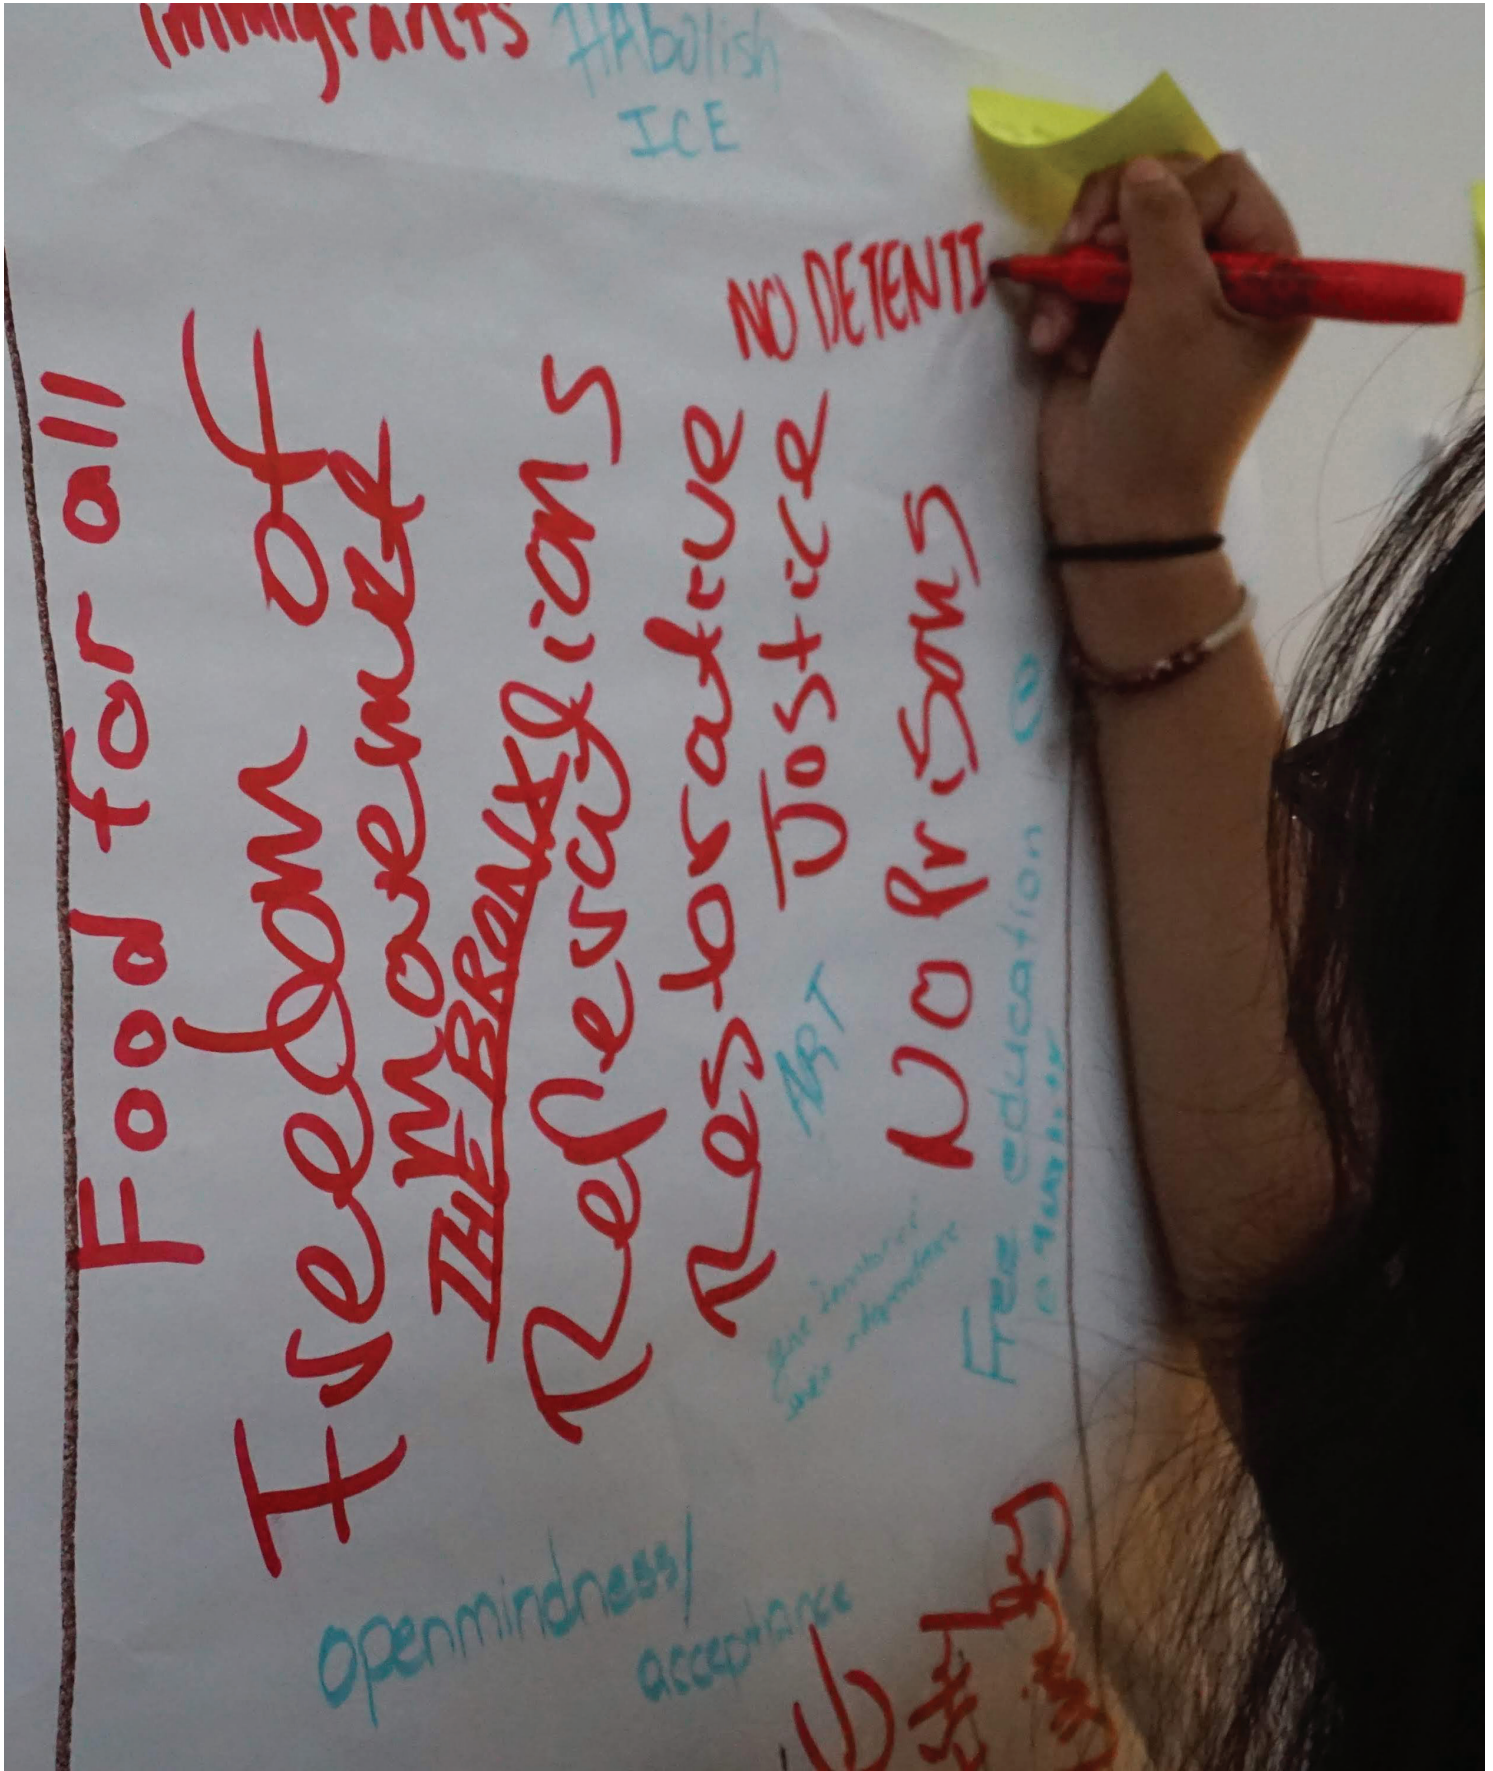 immigrants
#Abolish
ICE
NO DETENTI
Food for all
Freedom of
movement
THE BRONX
Reperaylions
Restorative
Justice
ART
No Prisons
Free education
openmindness/
acceptance